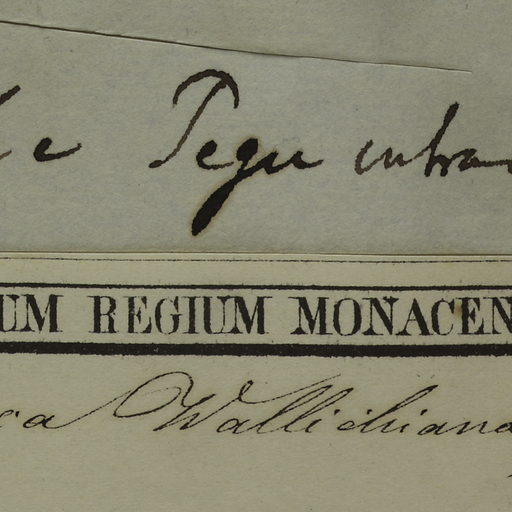 Pegu intra
UM REGIUM MONACEN
ca Wallichiana